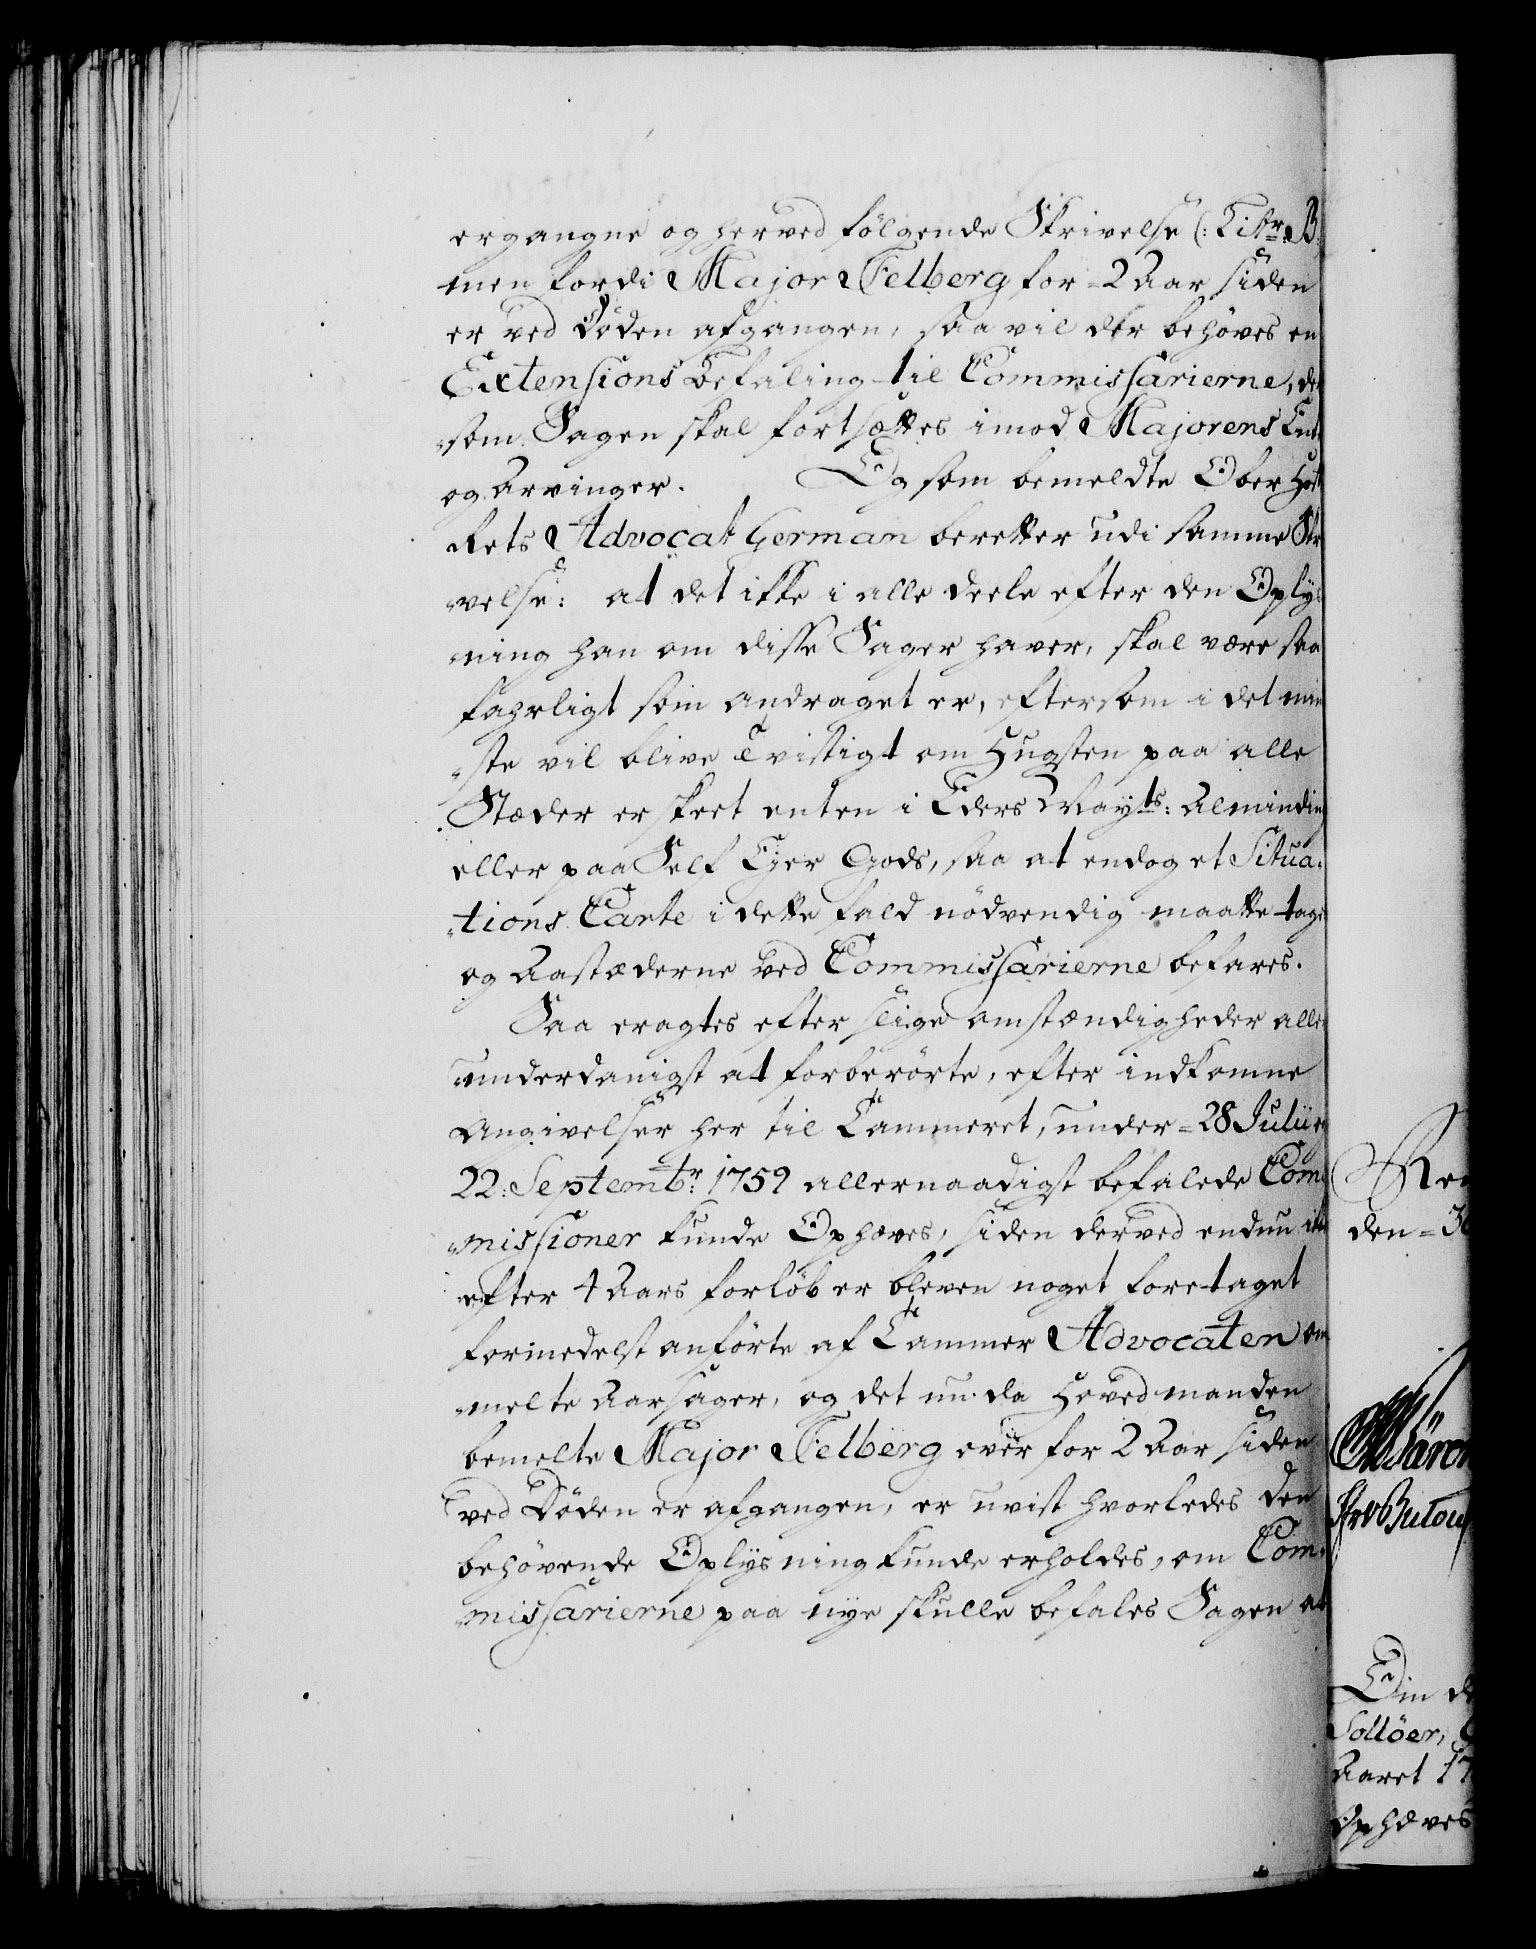 ergangne og herved følgende Skrivelse (: Litr: B:
men fordi Major Felberg for = 2 Aar siden
er ved Døden afgangen, saa vil der behøves en
Extensions Befaling til Commissarierne, der
som Sagen skal fortsættes imod Majorens
og Arvinger. Og som bemeldte Ober Hof
Rets Advocat German beretter udi samme Skri
velse: at det ikke i alle deele efter den Oplys
ning han om disse Sager haver, skal være saa
fahrligt som andraget er, eftersom i det min
ste vil blive tvistigt om Hugsten paa alle
Stæder er skeet enten i Eders Mayts: Alminding
eller paa Self Ejer Gods, saa at endog et Situa-
tions Carte i dette fald nødvendig maatte tages
og Aastæderne ved Commissarierne befares.
Saa eragtes efter slige omstændigheder aller
underdanigst at forberørte, efter indkomne
Angivelser her til Cammeret, under = 28 Julii
22: Septembr: 1759 allernaadigst befalede Com-
missioner kunde Ophæves, siden derved endnu
efter 4 Aars forløb er bleven noget foretaget
formedelst anførte af Cammer Advocaten om
melte Aarsager, og det nu da Hovedmanden
bemelte Major Felberg over for 2 Aar siden
ved Døden er afgangen, er uvist hvorledes den
behøvende Oplysning kunde erholdes, om Com-
missarierne paa nye skulle befales Sagen at
den = 3
Soløer,
Aaret 17
Ophæves